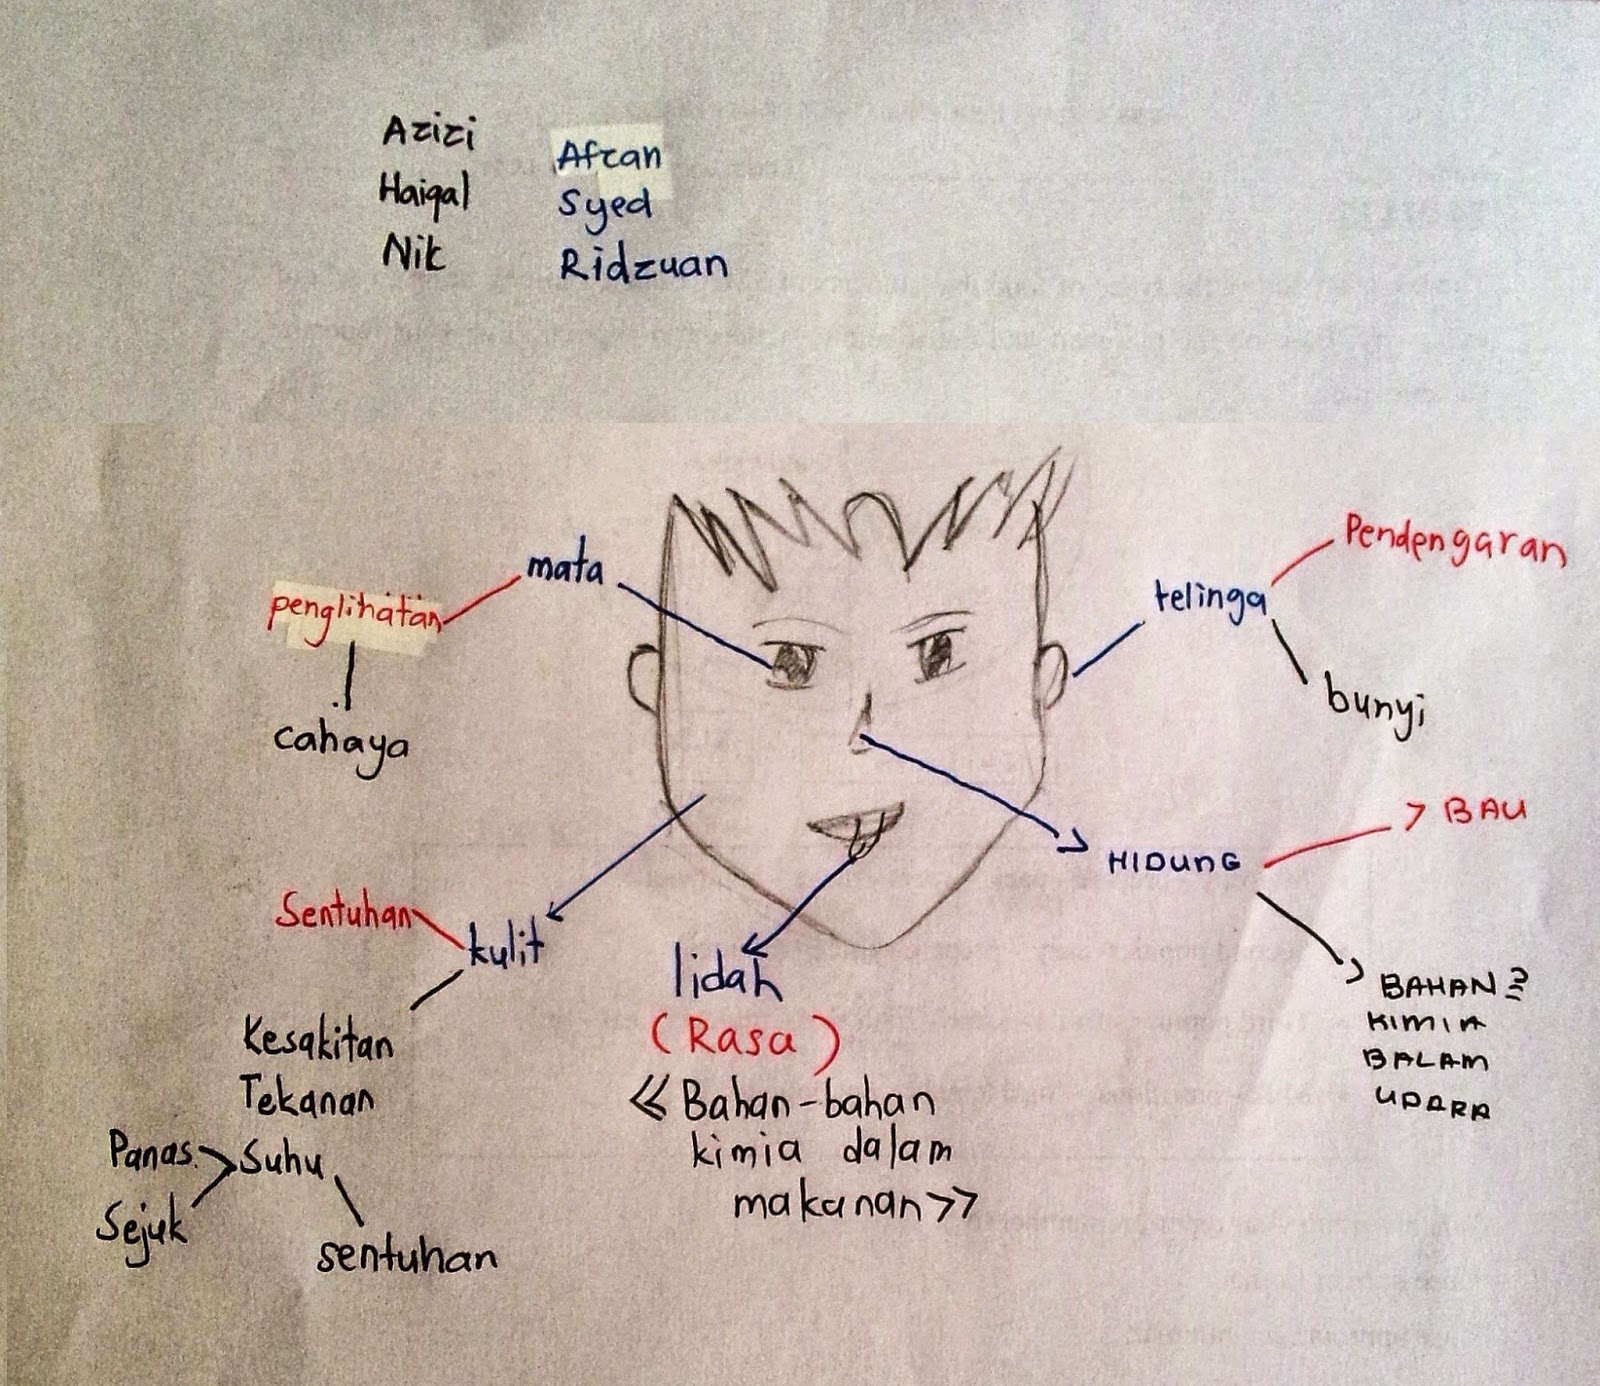 Azizi
Haiqal
Nik
Afzan
Syed
Ridzuan
mata
penglihatan
cahaya
telinga
Pendengaran
bunyi
HIDUNG
BAU
BAHAN
KIMIA
BALAM
UDARA
Sentuhan
kulit
Kesakitan
Tekanan
Panas
Suhu
Sejuk
sentuhan
lidah
(Rasa)
<< Bahan-bahan
kimia dalam
makanan >>